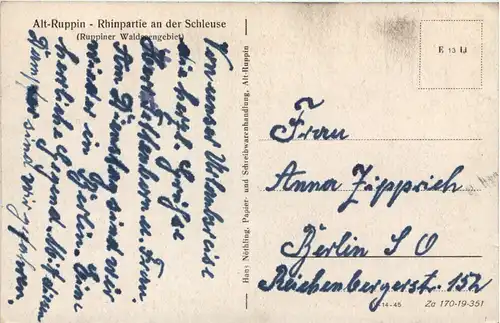 Alt-Ruppin - Rhinpartie an der Schleuse
(Ruppiner Waldseengebiet)
Von unser Urlaubsreise
herzl. Grüße
u. Fam.
Am Dienstag sind wir
wieder in Berlin. Eine
herrliche Gegend. Mit einem
Dampfer sind wir gefahren.
Hans Nöthling, Papier- und Schreibwarenhandlung, Alt-Ruppin
E 13 U
Frau
Anna Zipprich
Berlin S O
Reichenbergerstr. 152
-14-45
Za 170-19-351